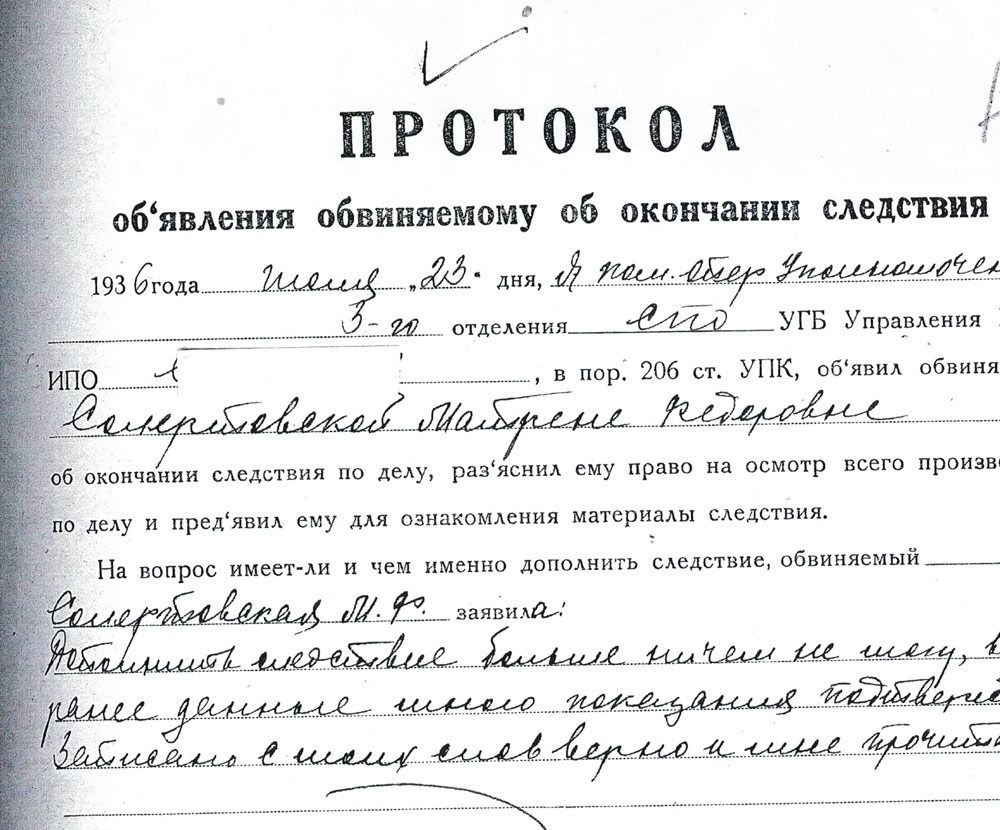 ПРОТОКОЛ
об‘явления обвиняемому об окончании следствия
1936 года июля „23" дня, Я пом. Опер Уполномочен
3-го отделения СПО УГБ Управления
ИПО , в пор. 206 ст. УПК, об‘явил обвиня
Солертовской Матрене Федоровне
об окончании следствия по делу, раз‘яснил ему право на осмотр всего произв
по делу и пред‘явил ему для ознакомления материалы следствия.
На вопрос имеет-ли и чем именно дополнить следствие, обвиняемый
Солертовская М. Ф. заявила:
Дополнить следствие больше ничем не могу,
ранее данные мною показания подтверж
Записано с моих слов верно и мне прочит